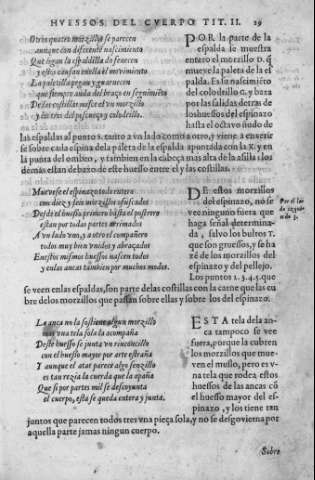 HVESSOS DEL CVERPO TIT. II. 29
Otros quatro morzillos se parecen
aunque con diferente nascimiento
Que siguen la espaldilla do fenecen
y estos causan en ella el movimiento
La paletilla pegan y guarnecen
que siempre anda del braço en seguimiento
De las costillas nasce el un morzillo
y los tres del pescueço y colodrillo.
POR la parte de la
espalda se muestra
entero el morzillo D. q̃
mueve la paleta de la es
palda. Es su nascimiẽto
del colodrillo G. y baxa
por las salidas detras de
los huessos del espinazo
hasta el octavo ñudo de
las espaldas al punto 8. cuito a vn lado como a otro, y viene a enxerir
se sobre cada espina de la paleta de la espalda apuntada con la X. y en
la punta del ombro, y tambien en la cabeça mas alta de la asilla: los
demas estan debaxo de este huesso entre el y las costillas.
Mueve se el espinazo todo entero
con diez y seis morzillos ofuscados
Desde el huesso primero hasta el postrero
estan por todas partes arrimados
A vn lado vno, y a otro el compañero
todos muy bien vnidos y abraçados
En estos mismos huessos nascen todos
y en las ancas tambien por muchos modos.
DE estos morzillos
del espinazo, no se
vee ninguno fuera que
haga señal determina-
da, salvo los bultos T.
que son gruessos, y se ha
zẽ de los morzillos del
espinazo y del pellejo.
Los puntos 1. 2. 3. 4. que
se veen en las espaldas, son parte de las costillas con la carne que las cu
bre de los morzillos que passan sobre ellas y sobre los del espinazo.
Por el lado
La anca no la sostiene algun morzillo
mas vna tela sola la acompaña
Deste huesso se junta vn rinconcillo
con el huesso mayor por arte estraña
Y aunque el atar parece algo senzillo
es tan rezia la cuerda que la apaña
Que si por partes mil se descoyunta
el cuerpo, esta se queda entera y junta.
ESTA tela dela an-
ca tampoco se vee
fuera, porque la cubren
los morzillos que mue-
ven el muslo, pero es v-
na tela que rodea estos
huessos de las ancas cõ
el huesso mayor del es-
pinazo, y los tiene tan
juntos que parecen todos tres vna pieça sola, y no se desgovierna por
aquella parte jamas ningun cuerpo.
Sobre